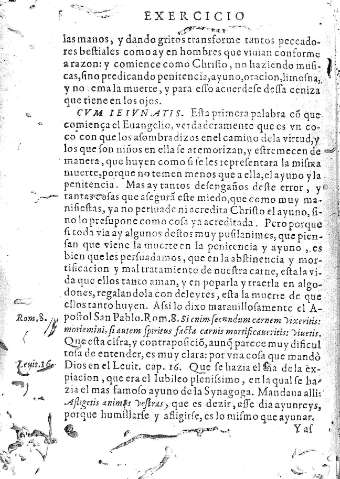 EXERCICIO
las manos, y dando gritos transforme tantos peccado-
res bestiales como ay en hombres que viuian conforme
a razon: y comience como Christo, no haziendo musi-
cas, sino predicando penitencia, ayuno, oracion, limosna,
y no ema la muerte, y para esso acuerdese desta ceniza
que tiene en los ojos.
CVM IEIVNATIS. Esta primera palabra cõ que
comiença el Euangelio, verdaderamente que es vn co-
co con que los asombradizos en el camino de la virtud, y
los que son niños en ella se atemorizan, y estremecen de
manera, que huyen como si se les representara la misma
muerte, porque no temen menos que a ella, el ayuno y la
penitencia. Mas ay tantos desengaños deste error, y
tantas cosas que asegurã este miedo, que como muy ma-
nifiestas, ya no persuade ni acredita Christo el ayuno, si-
no lo presupone como cosa ya acreditada. Pero porque
si toda via ay algunos destos muy pusilanimes, que pien-
san que viene la muerte en la penitencia y ayuno, es
bien que les persuadamos, que en la abstinencia y mor-
tificacion y mal tratamiento de nuestra carne, esta la vi-
da que ellos tanto aman, y en poparla y traerla en algo-
dones, regalandola con deleytes, esta la muerte de que
ellos tanto huyen. Assi lo dixo marauillosamente el A-
Rom. 8. postol San Pablo. Rom. 8. Si enim secundum carnem vixeritis:
moriemini, si autem spiritus facta carnis mortificaueritis: viuetis.
Que esta cifra, y contraposiciõ, aunq̃ parece muy dificul
tosa de entender, es muy clara: por vna cosa que mandò
Leuit. 16. Dios en el Leuit. cap. 16. Que se hazia el dia de la ex-
piacion, que era el Iubileo plenissimo, en la qual se ha-
zia el mas famoso ayuno de la Synagoga. Mandana allis
Afligetis animas vestras, que es dezir, esse dia ayunareys,
porque humillarse y afligirse, es lo mismo que ayunar.
Y as